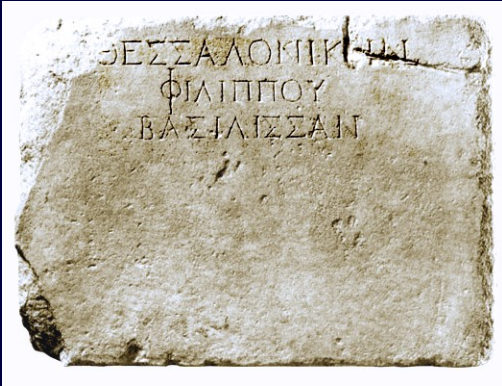 ΘΕΣΣΑΛΟΝΙΚΗΝ
ΦΙΛΙΠΠΟΥ
ΒΑΣΙΛΙΣΣΑΝ